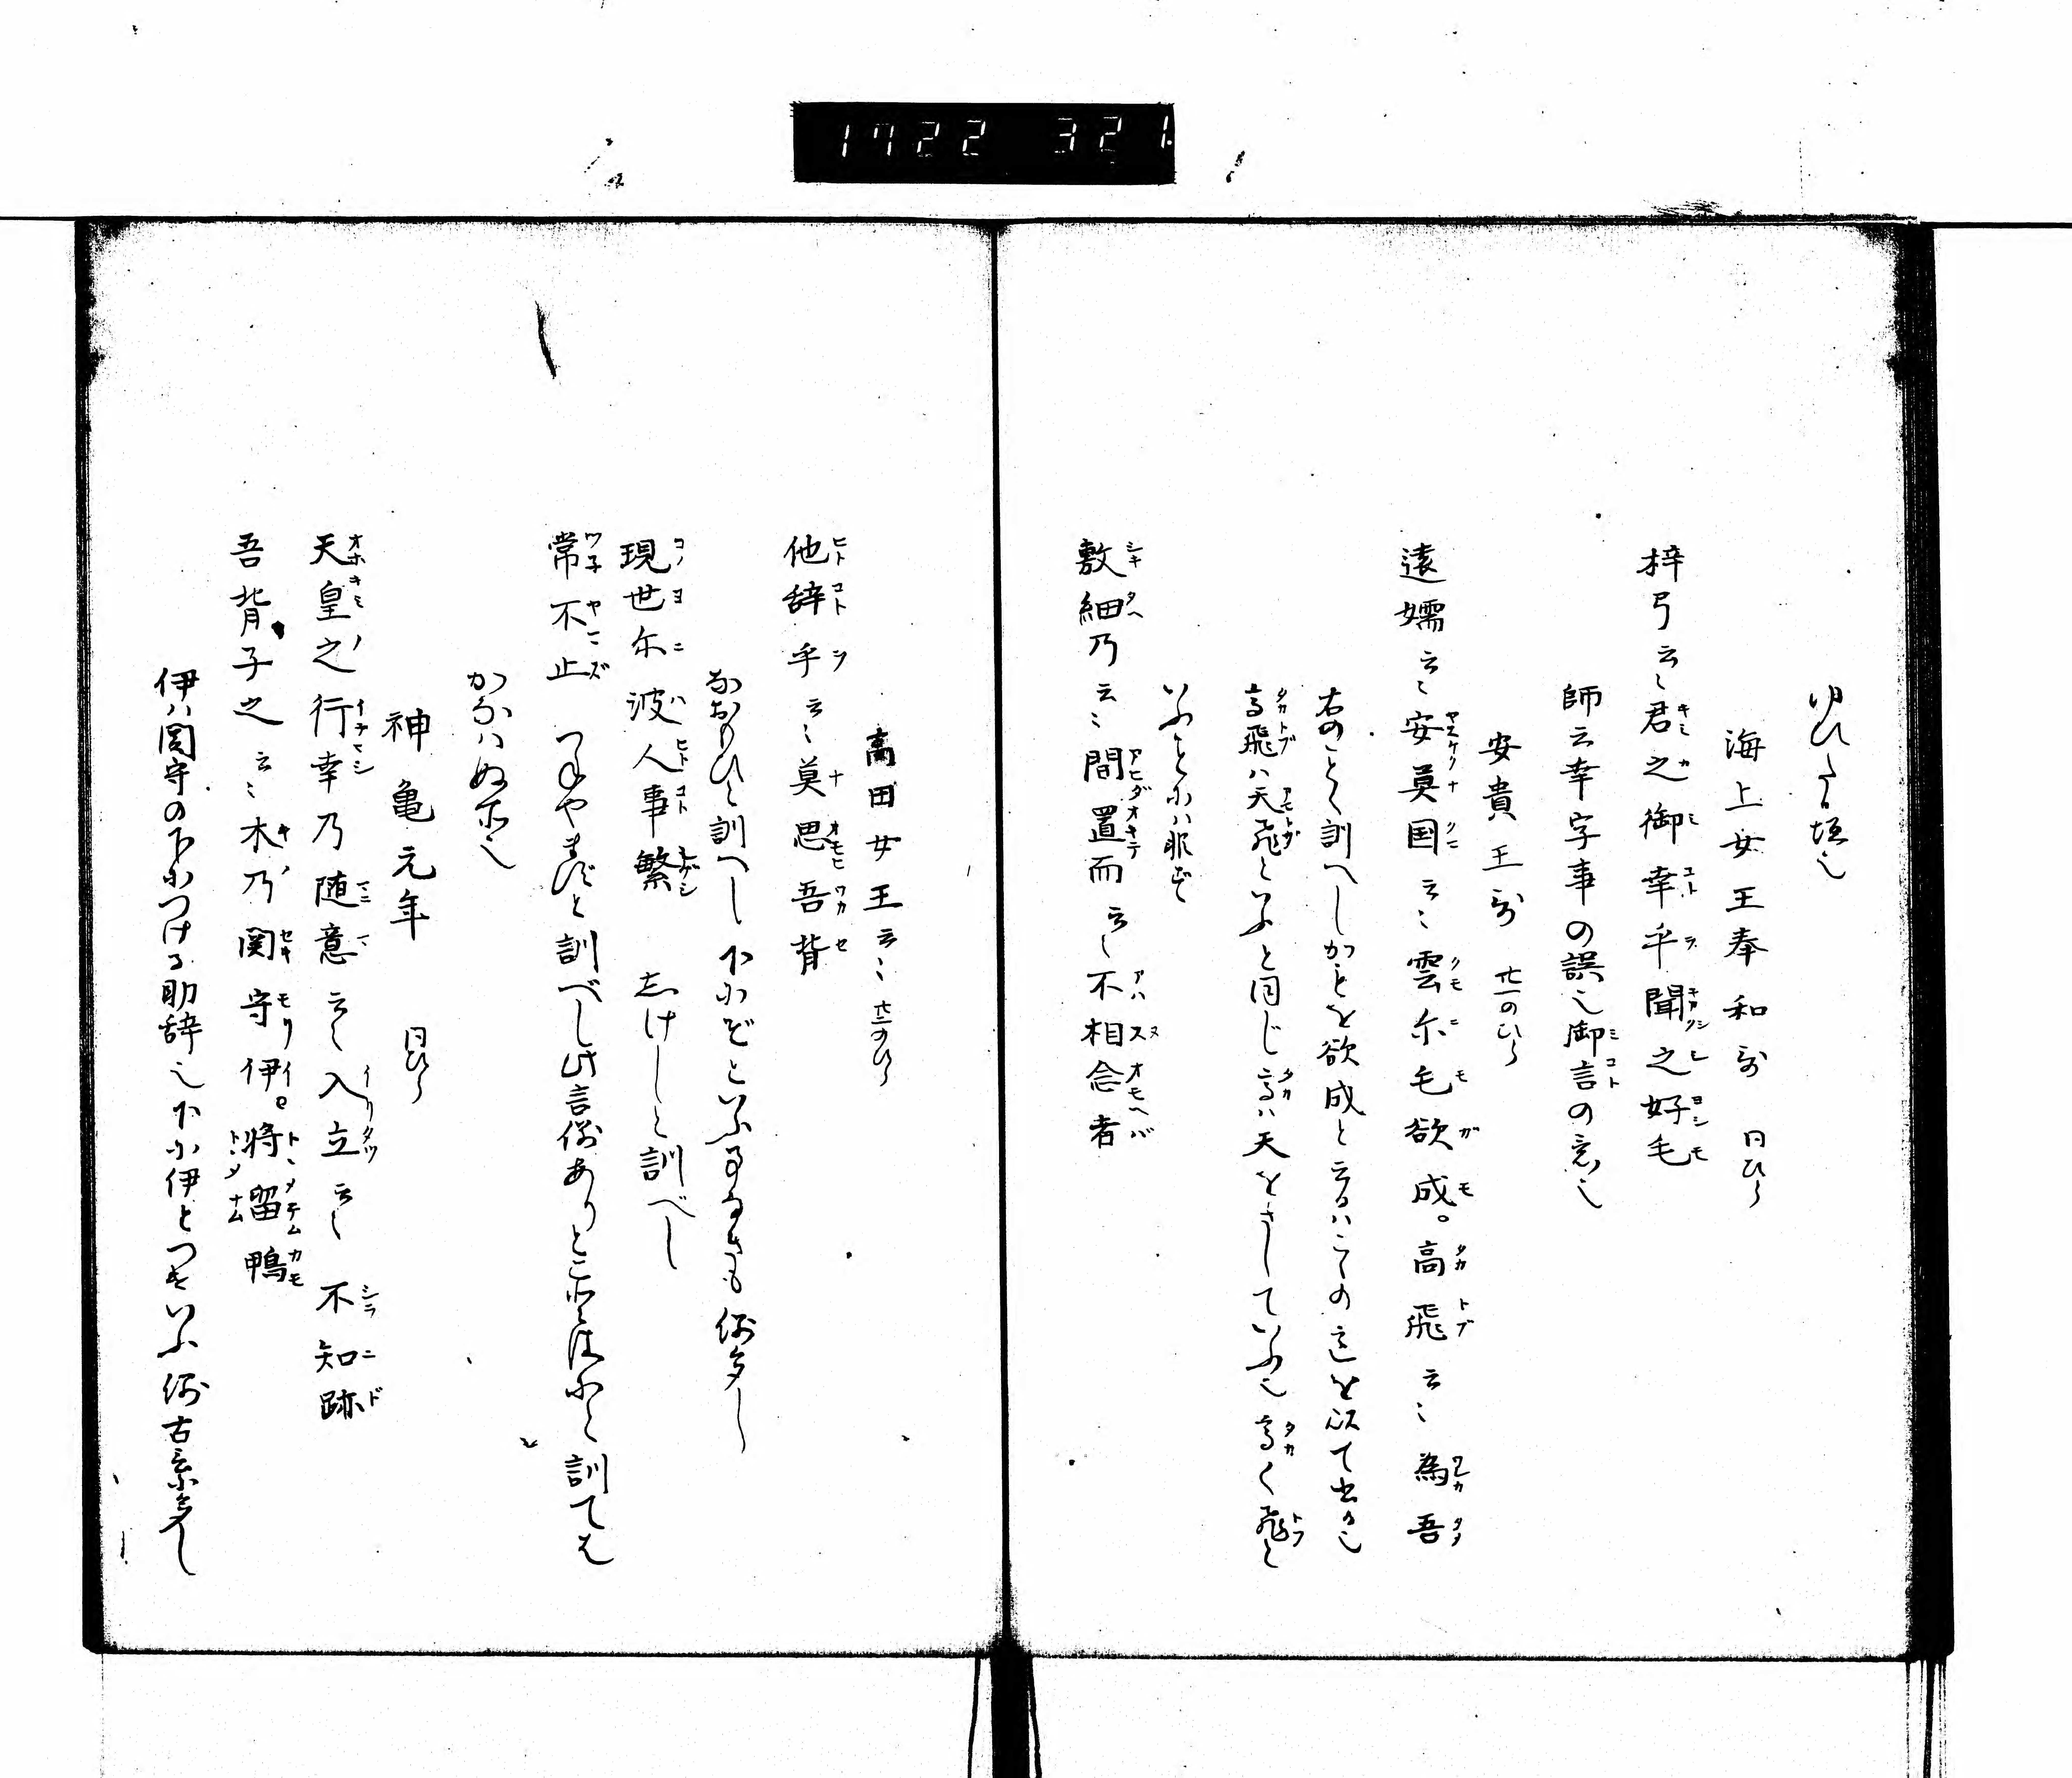 1722 321
ゆひたる垣也
海上女王奉和歌 同ひら
梓弓云々君之御幸乎聞之好毛
師云幸字事の誤也御言の意也
安貴王歌 廿一のひら
遠嬬云々安莫国云々雲尓毛欲成。高飛云々為吾
右のことく訓へしかもを欲成と云るはこくの意を以て出る也
高飛ハ天飛といふと同じ高ハ天をさしていふ也高く飛と
いふとにハ非ず
敷細乃云々間置而云々不相念者
高田女王云々 廿二のひら
他辞乎云々莫思吾背
なおもひと訓へし下にぞといふ事なきも例多し
現世尓波人事繁 志けしと訓べし
常不止 つねやまずと訓べし此言例ありと
かなハぬ
神亀元年 同ひら
天皇之行幸乃随意云々入立云々不知跡
吾背子之云々木乃関守伊。将留鴨
伊ハ関守の下につける助辞也下に伊とつきいふ例古言多し